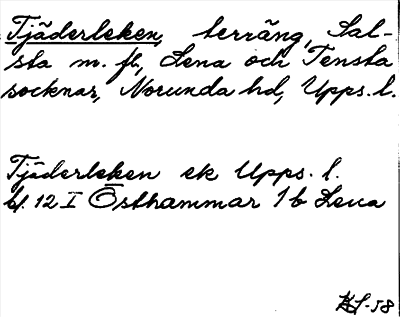 Tjäderleken, terräng, Sal-
sta m. fl., Lena och Tensta
socknar, Norunda hd, Upps. l.
Tjäderleken ek Upps. l.
bl. 12 I Östhammar 1b Lena
-58